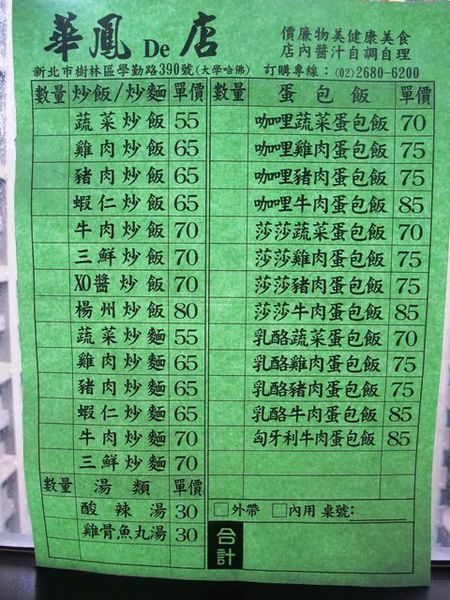 華鳳 De 店
價廉物美健康美食
店內醬汁自調自理
新北市樹林區學勤路390號(大學哈佛)
訂購專線：(02)2680-6200
數量 炒飯/炒麵 單價
蔬菜炒飯 55
雞肉炒飯 65
豬肉炒飯 65
蝦仁炒飯 65
牛肉炒飯 70
三鮮炒飯 70
XO醬炒飯 70
楊州炒飯 80
蔬菜炒麵 55
雞肉炒麵 65
豬肉炒麵 65
蝦仁炒麵 65
牛肉炒麵 70
三鮮炒麵 70
數量 湯類 單價
酸辣湯 30
雞骨魚丸湯 30
數量 蛋包飯 單價
咖哩蔬菜蛋包飯 70
咖哩雞肉蛋包飯 75
咖哩豬肉蛋包飯 75
咖哩牛肉蛋包飯 85
莎莎蔬菜蛋包飯 70
莎莎雞肉蛋包飯 75
莎莎豬肉蛋包飯 75
莎莎牛肉蛋包飯 85
乳酪蔬菜蛋包飯 70
乳酪雞肉蛋包飯 75
乳酪豬肉蛋包飯 75
乳酪牛肉蛋包飯 85
匈牙利牛肉蛋包飯 85
□外帶 □內用 桌號:
合計